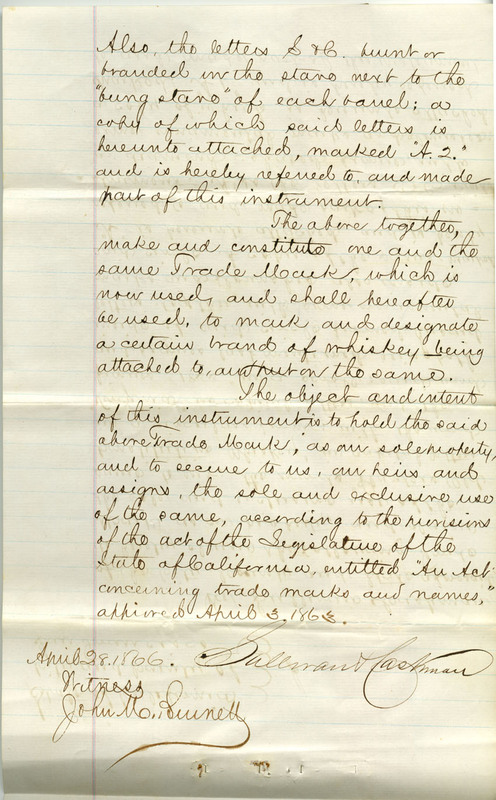 Also, the letters S & C. burnt or
branded in the stave next to the
"bung stave" of each barrel; a
copy of which said letters is
hereunto attached, marked "A. 2."
and is hereby referred to, and made
part of this instrument.
The above together,
make and constitute one and the
same Trade Mark, which is
now used, and shall hereafter
be used, to mark and designate
a certain brand of whiskey being
attached to, and put on the same.
The object and intent
of this instrument is to hold the said
above Trade Mark, as our sole property,
and to secure to us, our heirs and
assigns, the sole and exclusive use
of the same, according to the provisions
of the act of the Legislature of the
State of California, entitled "An Act
concerning trade marks and names,"
approved April 3, 1863.
April 28, 1866. Sullivan & Cashman
Witness
John M. Burnett